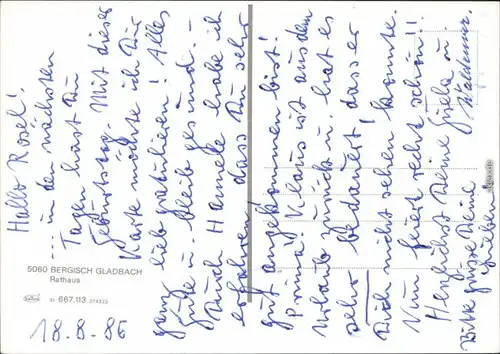 Hallo Rosel!
... in den nächsten
Tagen hast Du
Geburtstag. Mit dieser
Karte möchte ich Dir
ganz lieb gratulieren! Alles
Gute u. bleibe gesund. –
Durch Hannele habe ich
erfahren, dass Du sehr
gut angekommen bist!
Prima! Klaus ist aus dem
Urlaub zurück u. hat es
sehr bedauert, dass er
Dich nicht sehen konnte.
Nun feiert recht schön!!
Herzlichst Deine Gisela u.
Waldemar.
Bitte grüsse Deine
Lieben
5060 BERGISCH GLADBACH
Rathaus
667.113 274322
18.8.86